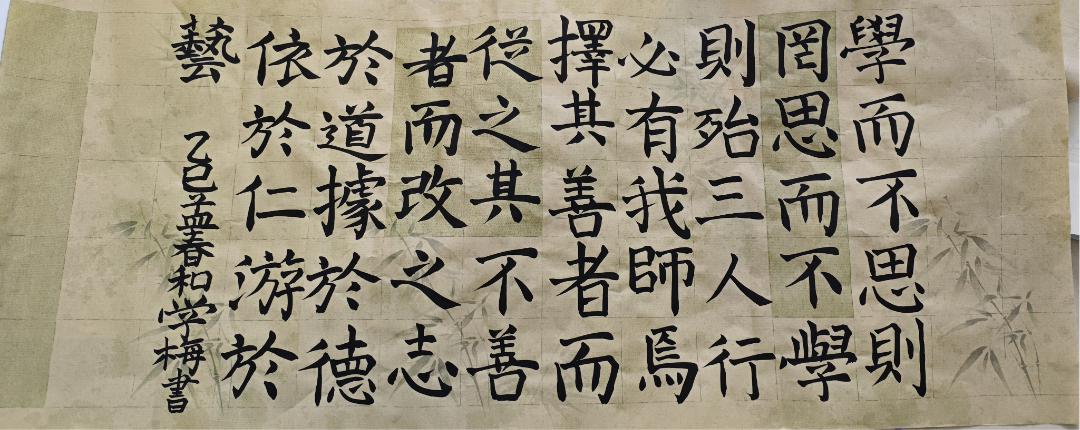 學而不思則
罔思而不學
則殆三人行
必有我師焉
擇其善者而
從之其不善
者而改之志
於道據於德
依於仁游於
藝
乙巳孟春和学梅書